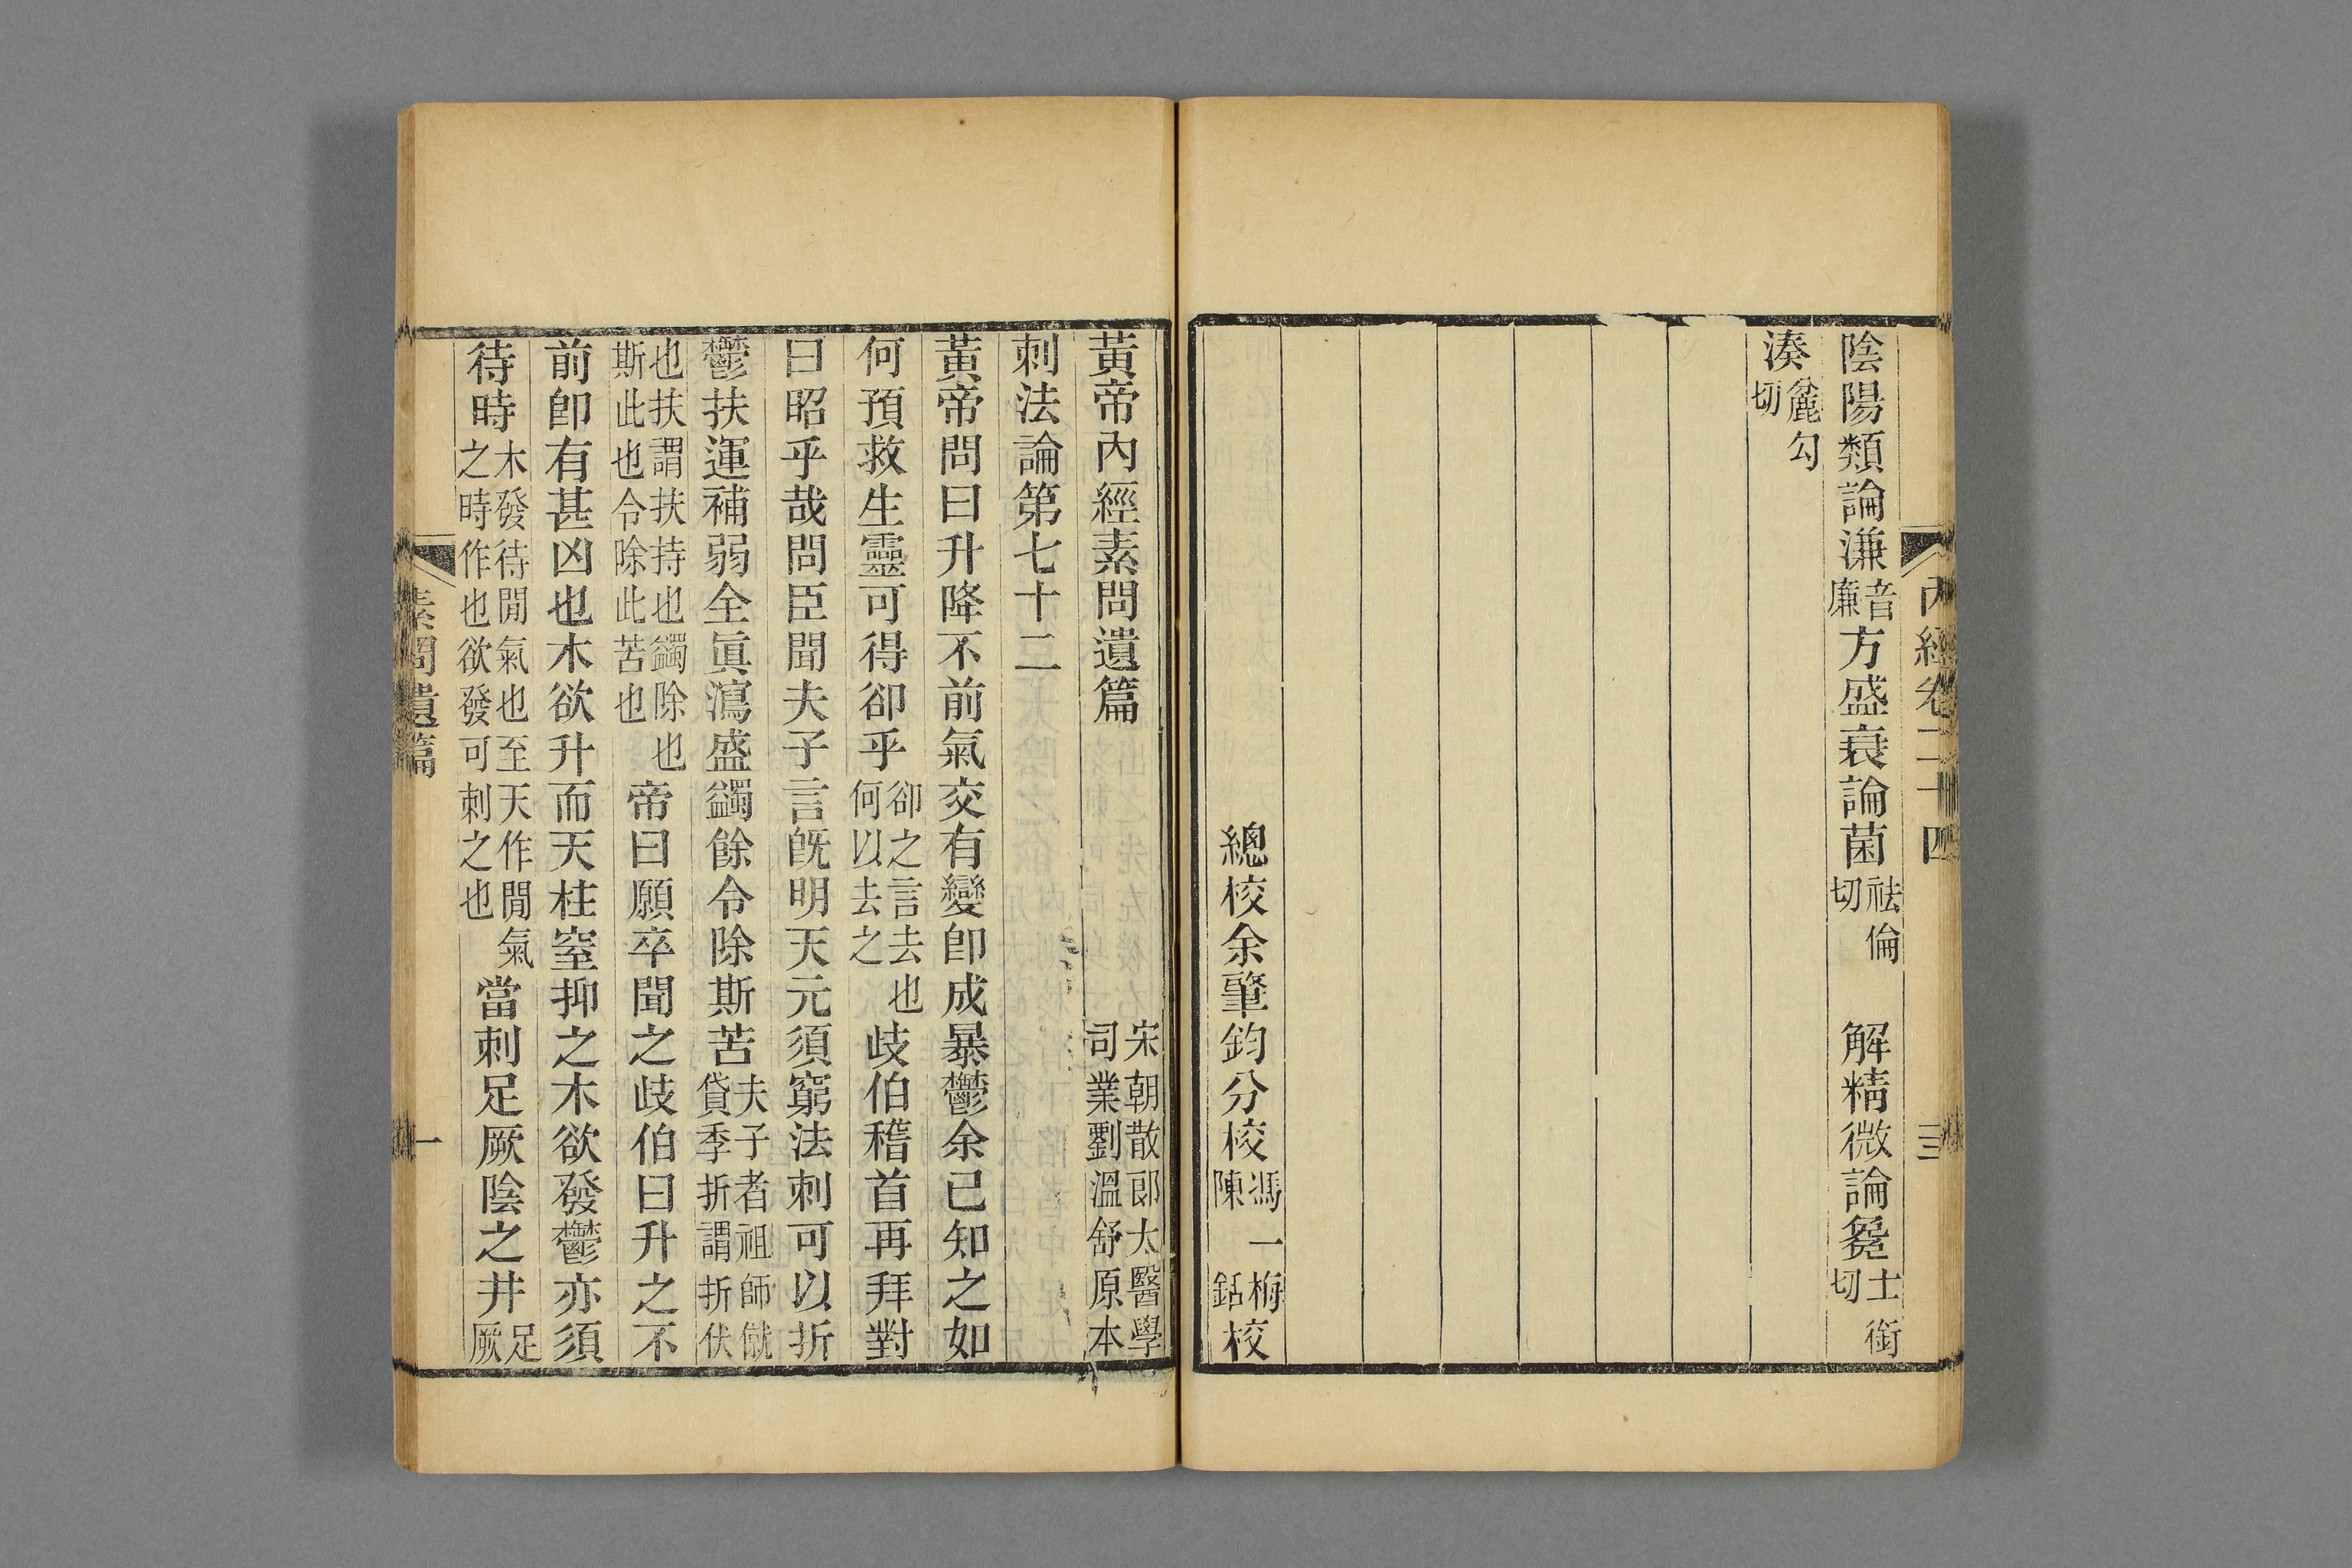 內經卷二十四 三
陰陽類論溓音廉方盛衰論菌袪倫切 解精微論毚士銜切
湊麄勾切
總校余肇鈞分校馮一梅陳銛校
黃帝內經素問遺篇 宋朝散郎太醫學司業劉溫舒原本
刺法論第七十二
黃帝問曰升降不前氣交有變卽成暴鬱余已知之如
何預救生靈可得卻乎卻之言去也何以去之歧伯稽首再拜對
曰昭乎哉問臣聞夫子言旣明天元須窮法刺可以折
鬱扶運補弱全眞瀉盛蠲餘令除斯苦夫子者祖師僦貸季折謂折伏
也扶謂扶持也蠲除也斯此也令除此苦也帝曰願卒聞之歧伯曰升之不
前卽有甚凶也木欲升而天柱窒抑之木欲發鬱亦須
待時木發待閒氣也至天作閒氣之時作也欲發可刺之也當刺足厥陰之井足厥
素問遺篇 一